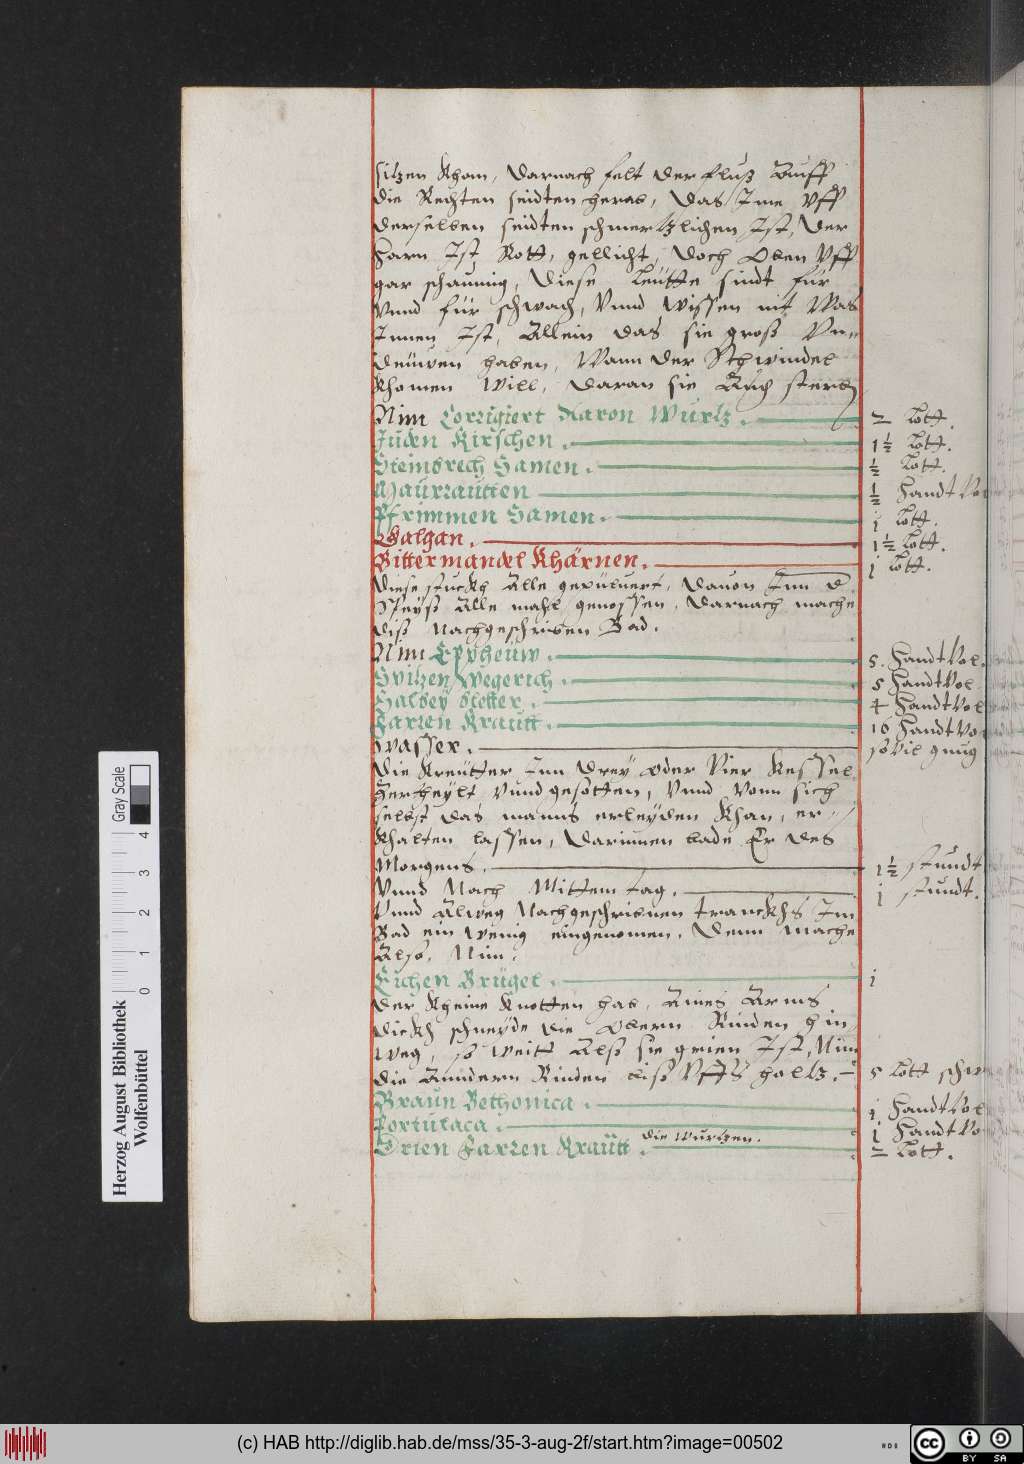 sitzen kham, darnach felt der fluß Auff
die Rechten seidten herab, das Ime Vff
derselben seidten schmertzlichen Ist, der
Harn Ist Rott, gellicht, doch Oben Vff
gar schaumig, diese Leütte sindt für
Vnnd für schwach, Vnnd wissen nit was
Innen Ist, Allein das sie groß Vn=
deüwen haben, Wann der Schwindel
khomen will, daran sie Auch sterb
Nim Corrigiert Aaron Wurtz. 2 Lott.
Juden Kirschen. 1½ Lott.
Steinbrech Samen. ½ Lott.
Maurrautten ½ Handt Vol
Pfrimmen Samen. j Lott.
Galgan. 1½ Lott.
Bittermandel Khärnen. j Lott.
Diese stuckh Alle gepuluert, dauon Inn d
Speyß Alle mahl genossen, darnach mache
diß Nachgeschriben Bad.
Nim Eppheüw. 5. Handt Vol.
Spitzen Wegerich. 5 Handt Vol
Salbey bletter. 4 Handt Vol
Farren Krautt. 16 Handt Vol
Wasser. so Vil gnug
Die Kreütter Inn drey oder Vier Kessel
Zertheylt vnnd gesotten, Vnnd Vonn sich
selbst das manns erleyden khan, er=
khalten lassen, darinnen bade Er des
Morgens. 1½ stundt
Vnnd Nach Mittem tag. j stundt.
Vnnd Alweg Nachgeschribnen tranckhs Im
Bad ein wenig eingenomen. Denn mache
Also. Nim.
Eichen Brügel. j
der kheine knotten hab, Aines Arms
dickh schneyde die Obern Rinden hin
weg, so weitt Alß sie grien Ist, Nim
die Anndern Rinden biß Vffs holtz. 5 Lott schwer
Braun Bethonica. j. Handt Vol
Portulaca. j Handt Vo
Drien Farren Krautt die wurtzen. 2 Lott.
Herzog August Bibliothek
Wolfenbüttel
0 1 2 3 4
Gray Scale
(c) HAB http://diglib.hab.de/mss/35-3-aug-2f/start.htm?image=00502
cc BY SA